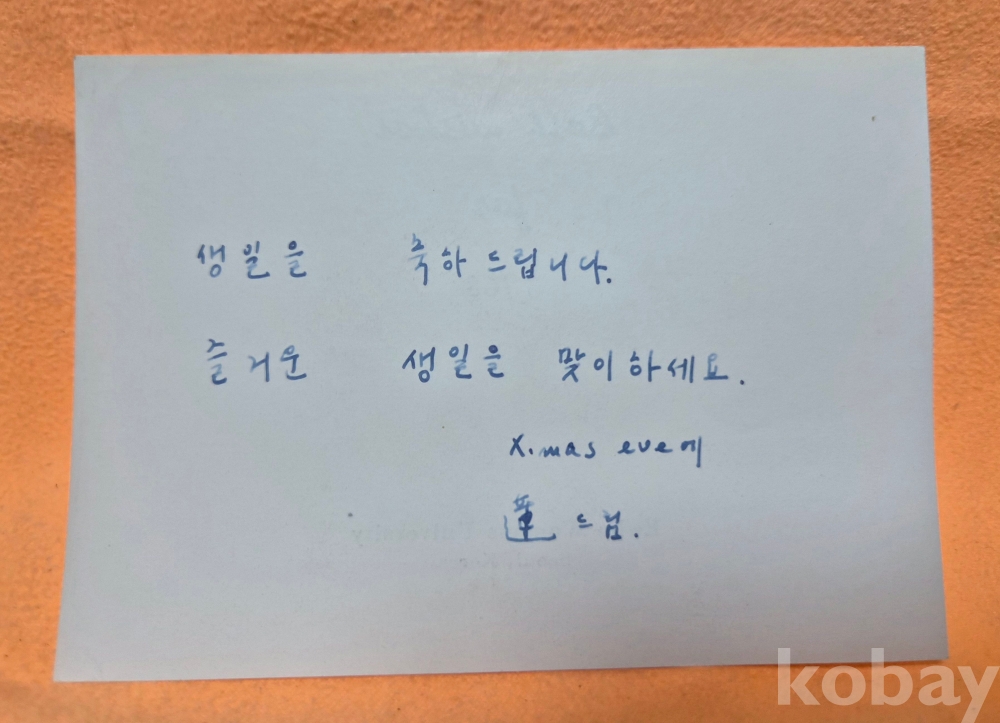 생일을 축하 드립니다.
즐거운 생일을 맞이하세요.
X.mas eve에
蓮 드림.
University
kobay